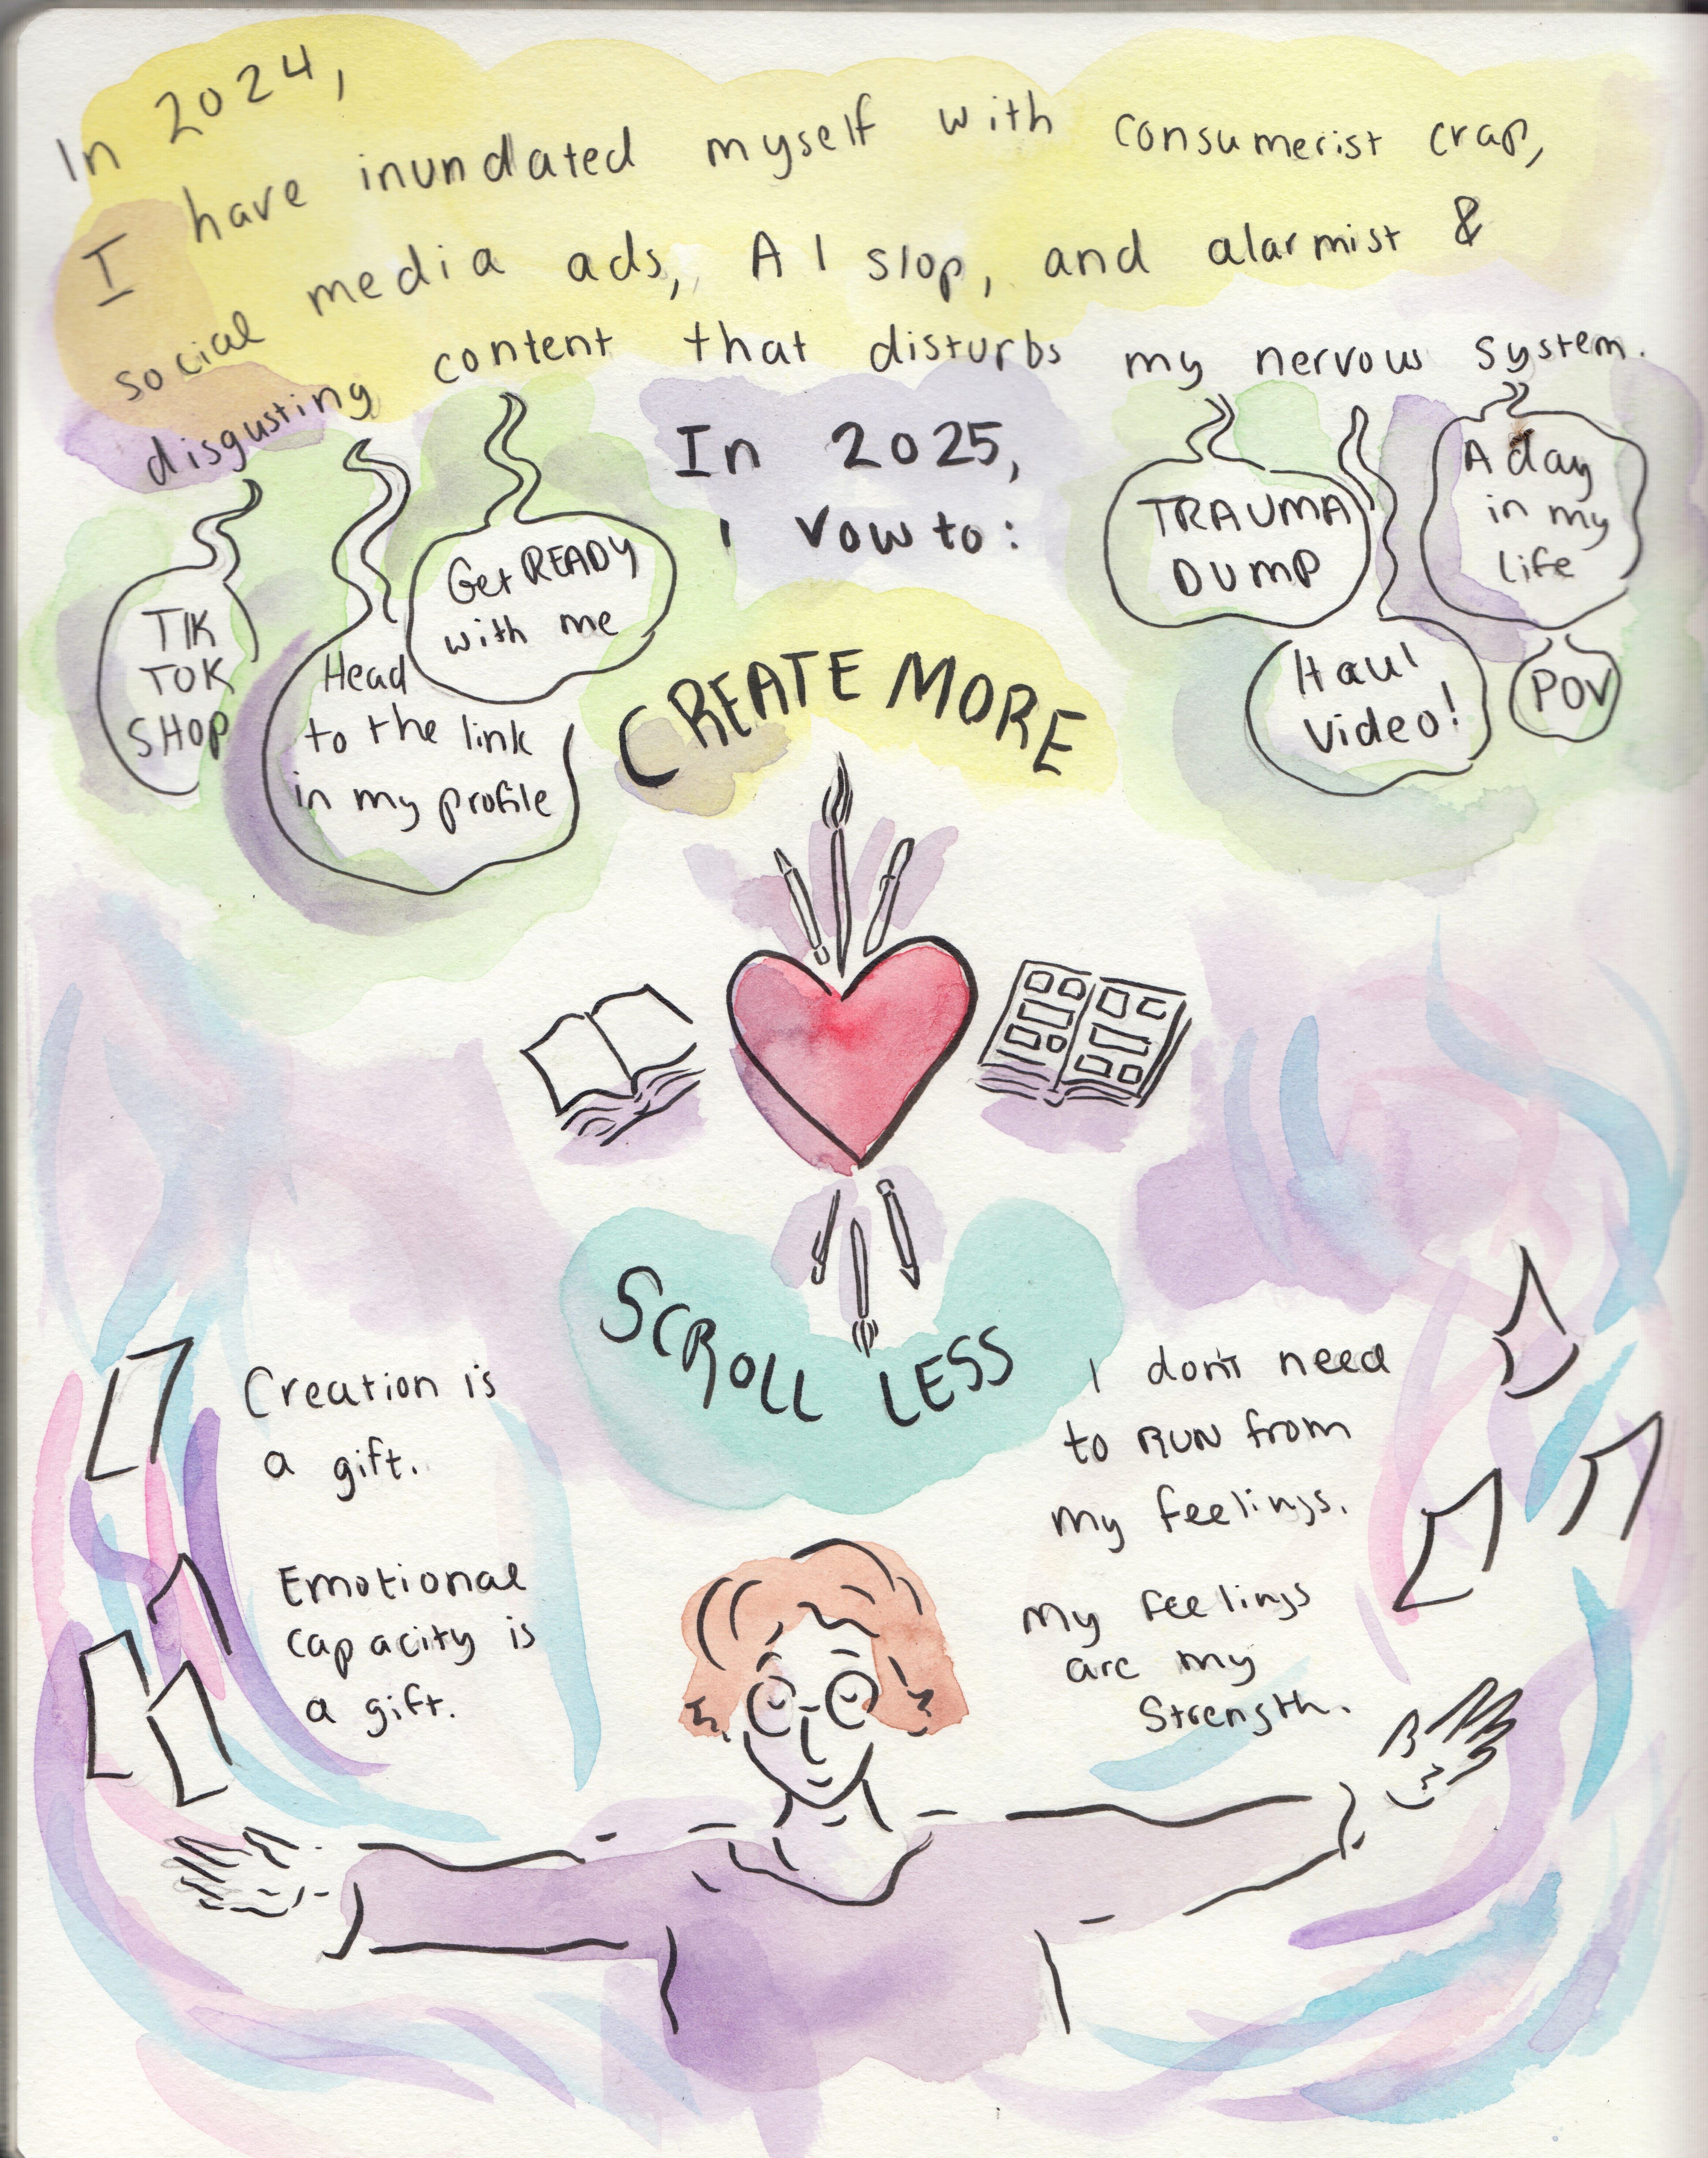 In 2024,
I have inundated myself with consumerist crap,
social media ads, AI slop, and alarmist &
disgusting content that disturbs my nervous system.
In 2025,
I vow to:
TIK
TOK
SHOP
Head
to the link
in my profile
Get READY
with me
TRAUMA
DUMP
A day
in my
life
Haul
Video!
POV
CREATE MORE
SCROLL LESS
Creation is
a gift.
Emotional
capacity is
a gift.
I don't need
to RUN from
my feelings.
My feelings
are my
Strength.